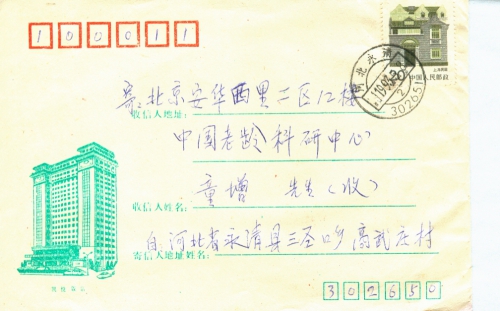 100011
中国人民邮政
河北永清
302651
寄:北京安华西里二区12楼
收信人地址:
中国老龄科研中心
童增 先生(收)
收信人姓名:
自河北省永清县三圣口乡高武庄村
寄信人地址姓名:
302650